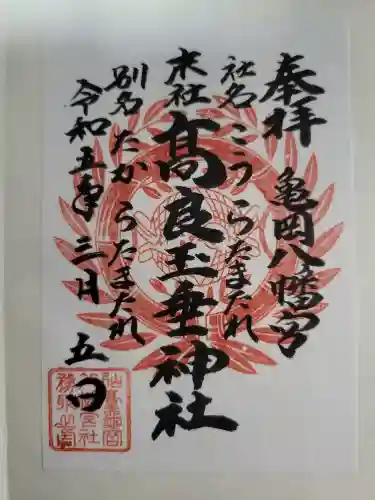 奉拝
亀岡八幡宮
社名 こうらたまたれ
末社
高良玉垂神社
別名 たからたまたれ
令和五年三月五日